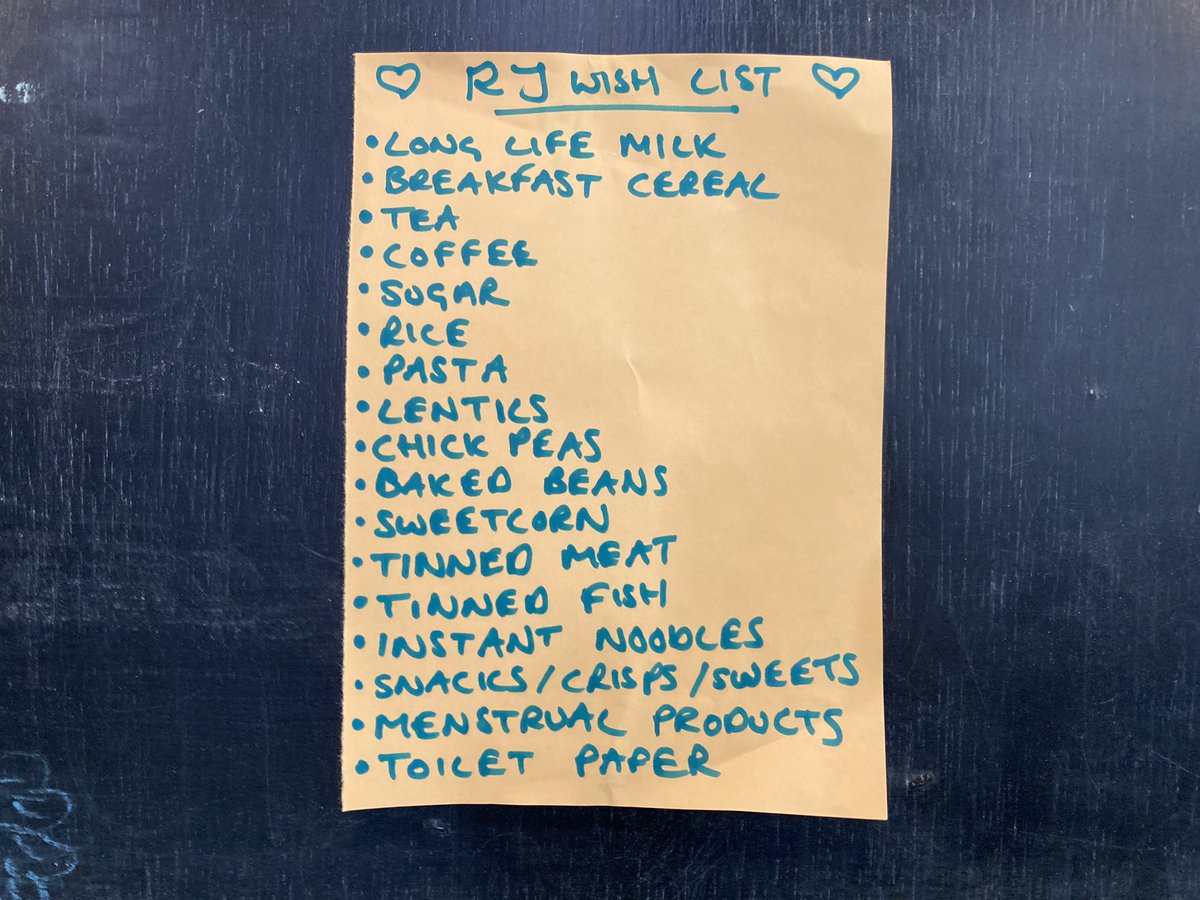 ♡ RJ WISH LIST ♡
• LONG LIFE MILK
• BREAKFAST CEREAL
• TEA
• COFFEE
• SUGAR
• RICE
• PASTA
• LENTILS
• CHICK PEAS
• BAKED BEANS
• SWEETCORN
• TINNED MEAT
• TINNED FISH
• INSTANT NOODLES
• SNACKS/CRISPS/SWEETS
• MENSTRUAL PRODUCTS
• TOILET PAPER